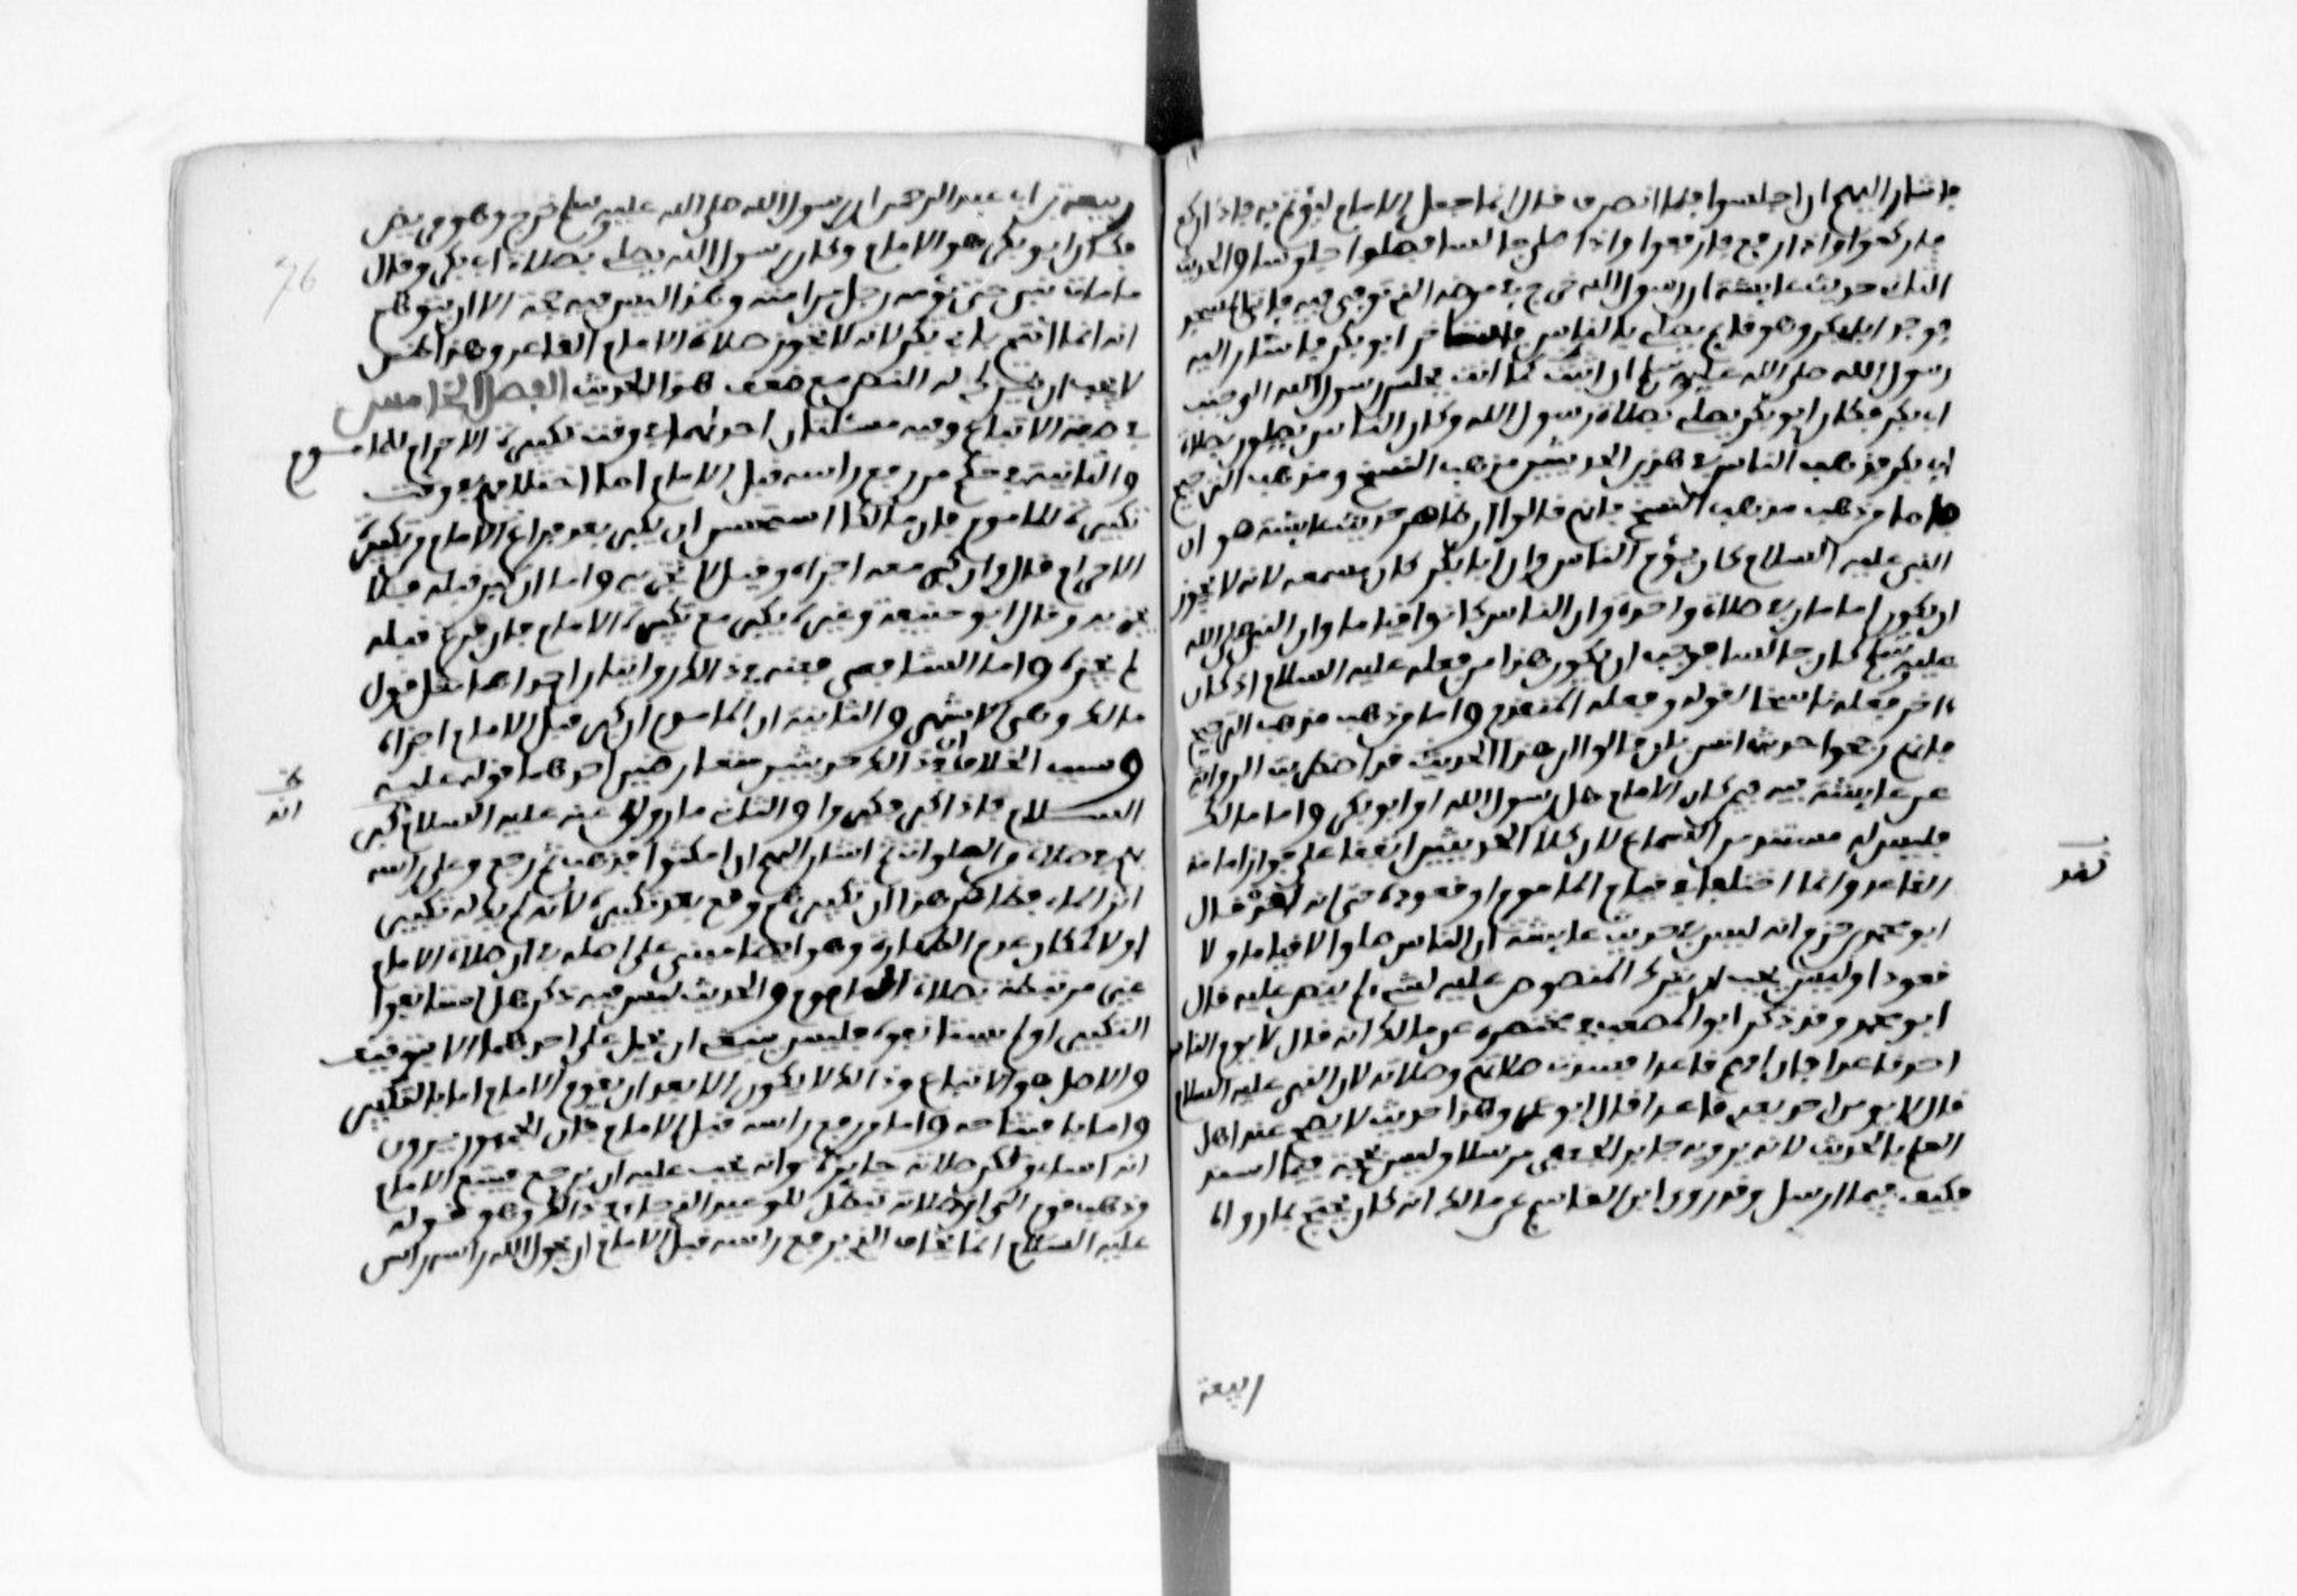 فاشار اليهم ان اجلسوا فلما انصرف قال انما جعل الامام ليؤتم به فاذا ركع
فاركعوا واذا رفع فارفعوا واذا صلى جالسا فصلوا جلوسا والحديث
الثاني حديث عايشة ان رسول الله خرج في مرضه الذي توفي فيه فاتى المسجد
فوجد ابا بكر وهو قايم يصلي بالناس فاستاخر ابو بكر فاشار اليه
رسول الله صلى الله عليه وسلم ان اثبت كما انت فجلس رسول الله الى جنب
ابي بكر فكان ابو بكر يصلي بصلاة رسول الله وكان الناس يصلون بصلاة
ابي بكر فذهب الناس في هذين الحديثين مذهب النسخ ومذهب الترجيح
فاما من ذهب مذهب النسخ فانهم قالوا ان ظاهر حديث عايشة هو ان
النبي عليه السلام كان يؤم الناس وان ابا بكر كان مسمعه لانه لا يجوز
ان يكون امامان في صلاة واحدة وان الناس كانوا قياما وان النبي صلى الله
عليه وسلم كان جالسا فوجب ان يكون هذا من فعله عليه السلام اذ كان
ءاخر فعله ناسخا لقوله وفعله المتقدم واما من ذهب مذهب الترجيح
فانهم رجحوا حديث انس بان قالوا ان هذا الحديث قد اضطربت الرواية
عن عايشة فيه فيمن كان الامام هل رسول الله او ابو بكر واما مالك
فليس له مستند من السماع لان كلا الحديثين اتفقا على جواز امامة
القاعد وانما اختلفا في قيام الماموم او قعوده حتى انه لقد قال
ابو محمد بن حزم انه ليس في حديث عايشة ان الناس صلوا لا قياما ولا
قعودا وليس يجب ان يترك المنصوص عليه لشيء لم ينص عليه قال
ابو محمد وقد ذكر ابو المصعب في مختصره عن مالك انه قال لا يوم الناس
احد قاعدا فان امهم قاعدا فسدت صلاتهم وصلاته لان النبي عليه السلام
قال لا يومن احد بعدي قاعدا قال ابو عمر وهذا حديث لا يصح عند اهل
العلم بالحديث لانه يرويه جابر الجعفي مرسلا وليس بحجة فيما اسند
فكيف فيما ارسل وقد روى ابن القاسم عن مالك انه كان يحتج بما رواه
ربيعة
ربيعة بن ابي عبد الرحمن ان رسول الله صلى الله عليه وسلم خرج وهو مريض
فكان ابو بكر هو الامام وكان رسول الله يصلي بصلاة ابي بكر وقال
ما مات نبي حتى يؤمه رجل من امته وهذا ليس فيه حجة الا ان يتوهم
انه انما ائتم بابي بكر لانه لا تجوز صلاة الامام القاعد وهذا ظن
لا يجب ان يترك له النص مع ضعف هذا الحديث الفصل الخامس
في صفة الاتباع وفيه مسئلتان احداهما في وقت تكبيرة الاحرام للماموم
والثانية في حكم من رفع راسه قبل الامام اما اختلافهم في وقت
تكبيرة للماموم فان مالكا استحسن ان يكبر بعد فراغ الامام من تكبيرة
الاحرام قال وان كبر معه اجزاه وقيل لا يجزيه واما ان كبر قبله فلا
يجزيه وقال ابو حنيفة وغيره يكبر مع تكبيرة الامام فان فرغ قبله
لم يجزه واما الشافعي فعنه في ذالك روايتان احداهما مثل قول
مالك وهي الاشهر والثانية ان الماموم ان كبر قبل الامام اجزاه
وسبب الخلاف ان في ذالك حديثين متعارضين احدهما قوله عليه
السلام فاذا كبر فكبروا والثاني ما روي عنه عليه السلام كبر
في صلاة من الصلوات ثم اشار اليهم ان امكثوا فذهب ثم رجع وعلى راسه
اثر الماء فظاهر هذا ان تكبيرهم وقع بعد تكبيره لانه لم يكن له تكبير
اولا لمكان عدم الطهارة وهو ايضا مبني على اصله في ان صلاة الامام
غير مرتبطة بصلاة الماموم والحديث ليس فيه ذكر هل استانفوا
التكبير او لم يستانفوه فليس ينبغي ان يحمل على احدهما الا بتوقيف
والاصل هو الاتباع وذالك لا يكون الا بعد ان يتقدم الامام اما بالتكبير
واما بافتتاحه واما من رفع راسه قبل الامام فان الجمهور يرون
انه اساء ولكن صلاته جايزة وانه يجب عليه ان يرجع فيتبع الامام
وذهب قوم الى ان صلاته تبطل للوعيد الذي جاء في ذالك وهو قوله
عليه السلام اما يخاف الذي يرفع راسه قبل الامام ان يحول الله راسه راس
76